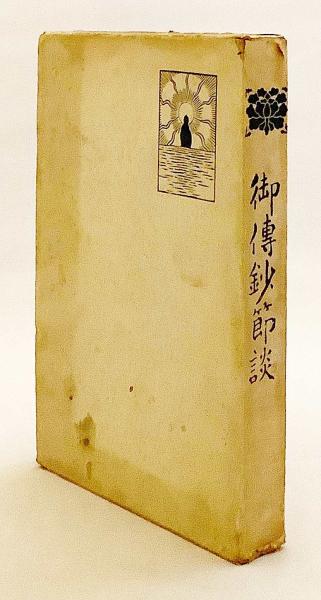 御傳鈔節談